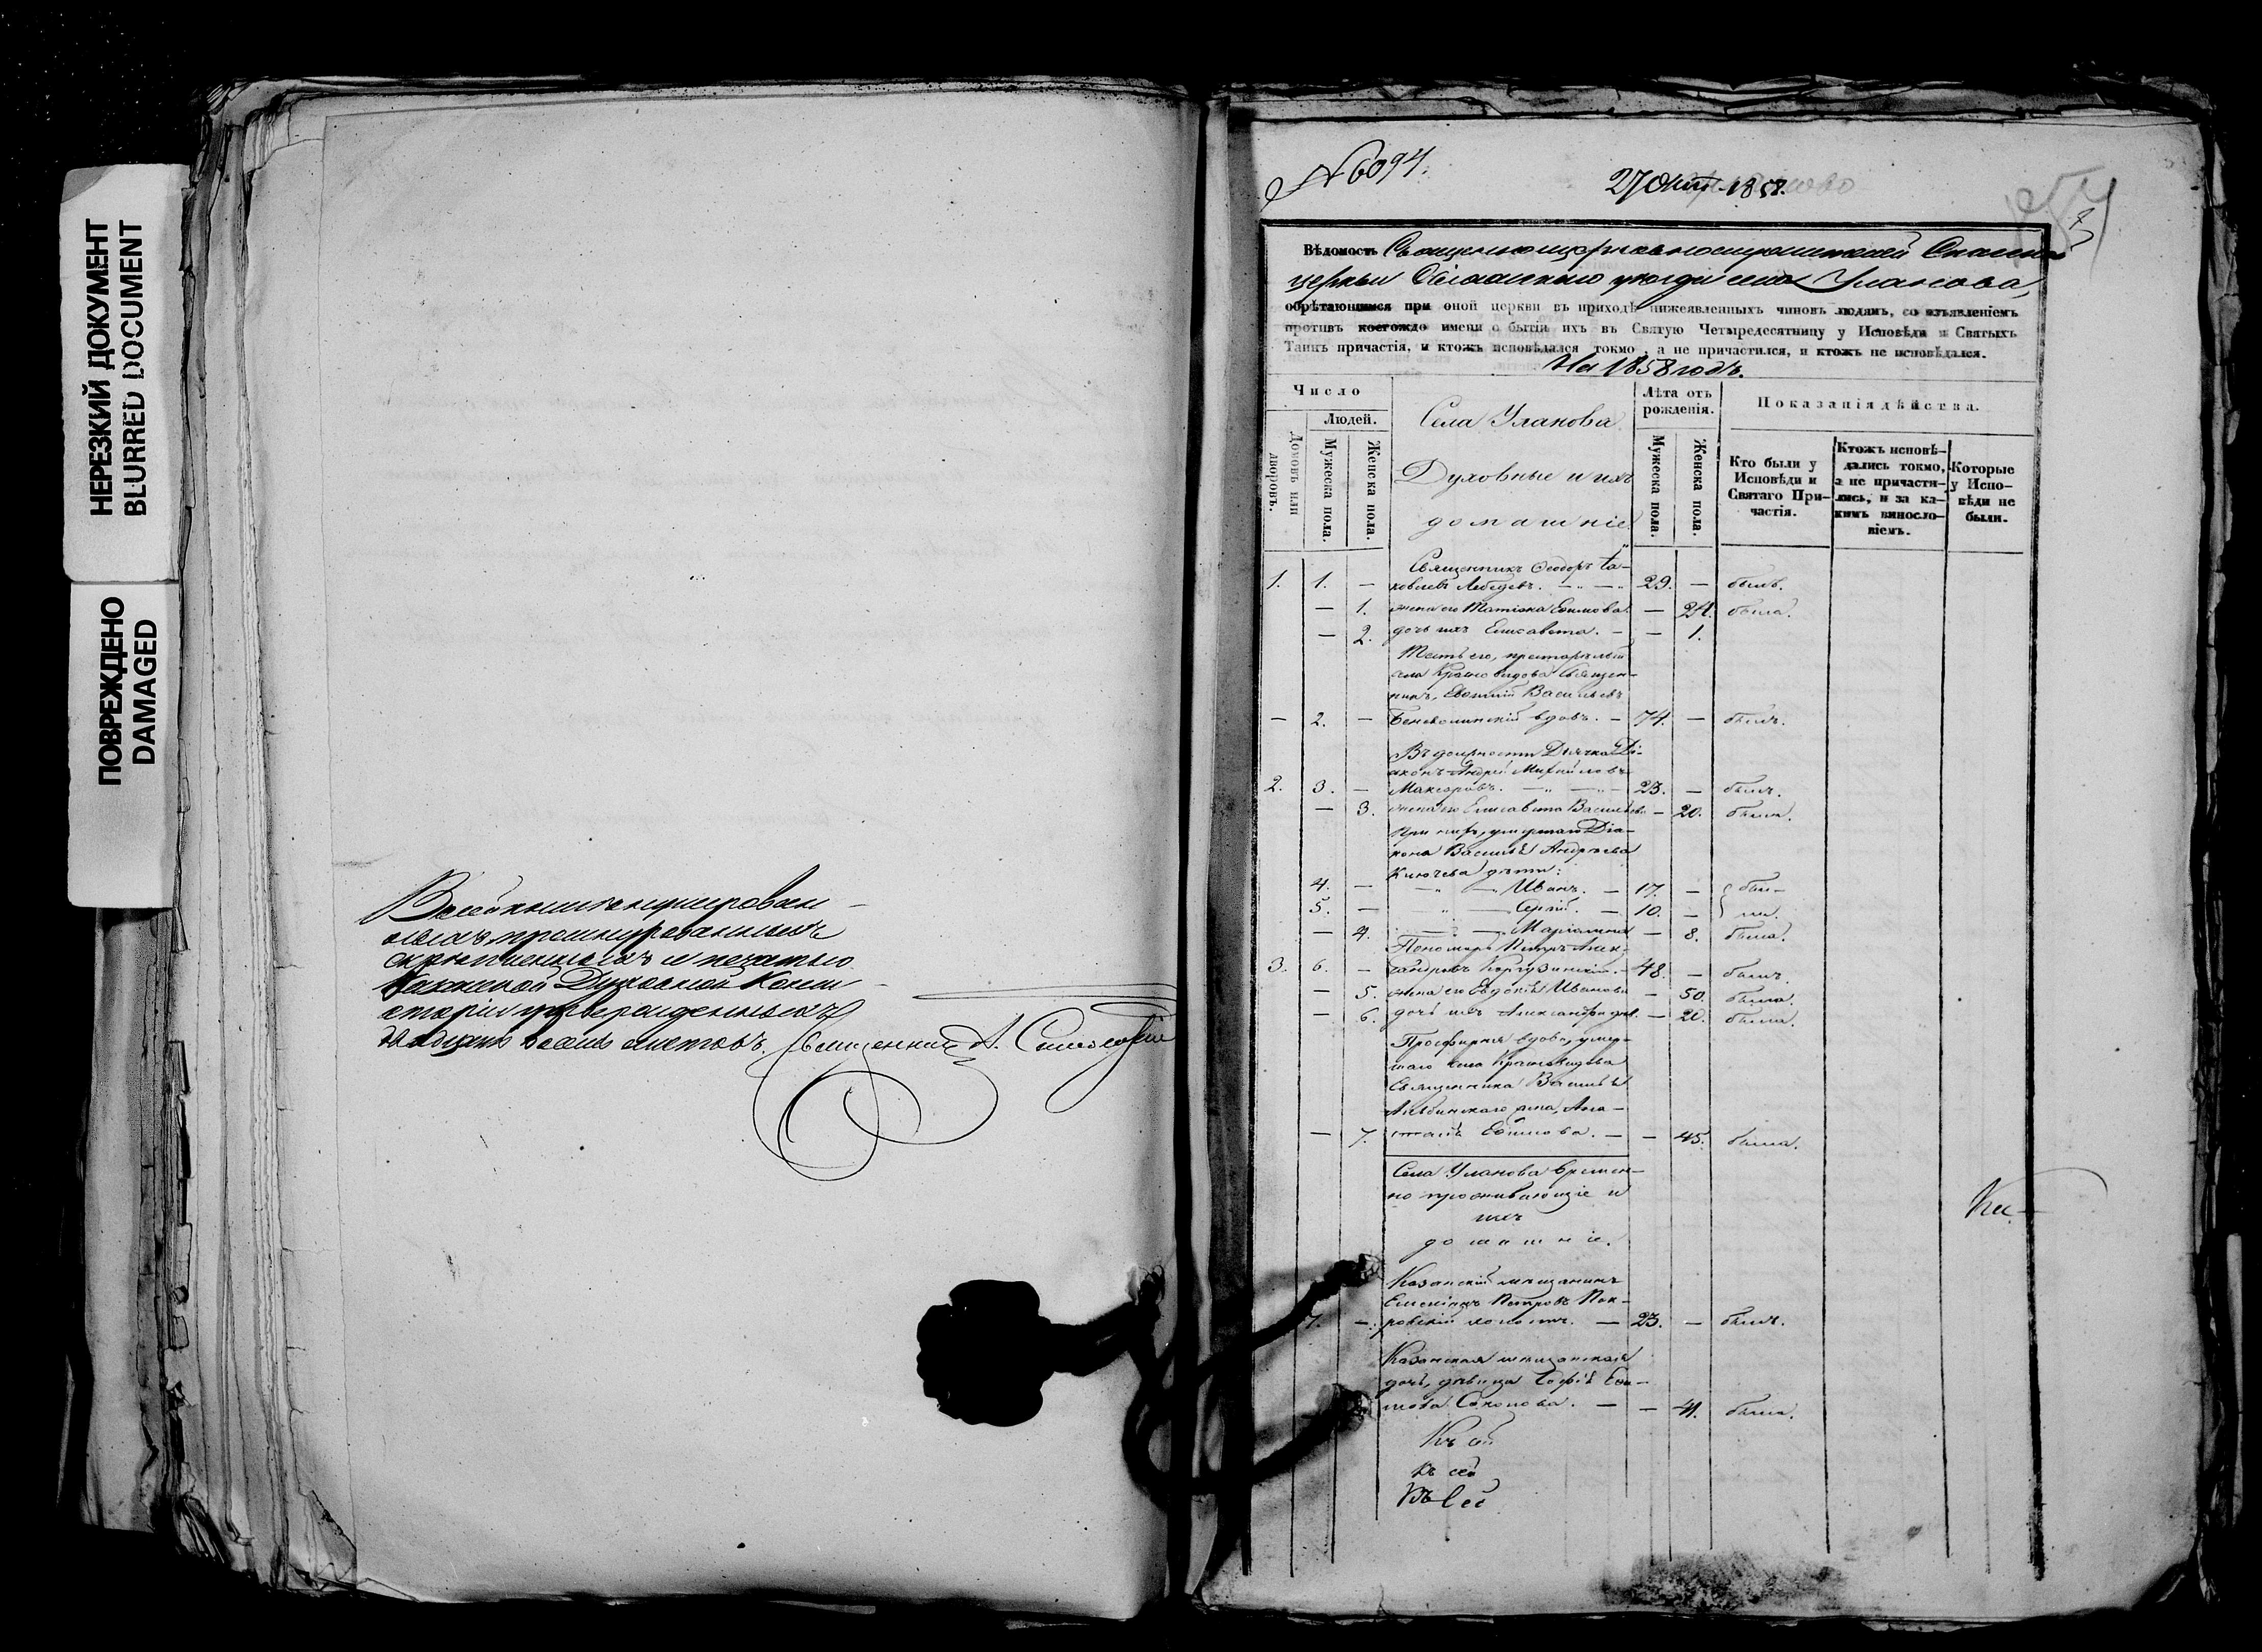 НЕРЕЗКИЙ ДОКУМЕНТ
BLURRED DOCUMENT
ПОВРЕЖДЕНО
DAMAGED
скрѣпленныхъ и печатью
Казанской Духовной Конси
сторіи утвержденныхъ
двадцать восемь листовъ. Священникъ А.
№ 6094.
27 Окт. 1858.
Вѣдомость Священноцерковнослужителей Спасской
церкви уѣзда села Уланова,
обрѣтающимся при оной церкви въ приходѣ нижеявленныхъ чиновъ людямъ, со изъявленіемъ
противъ коегождо имени о бытіи ихъ въ Святую Четыредесятницу у Исповѣди и Святыхъ
Таинъ причастія, и ктожъ исповѣдался токмо, а не причастился, и ктожъ не исповѣдался.
На 1858 годъ.
Число
Людей.
Домовъ или дворовъ.
Мужеска пола.
Женска пола.
Села Уланова
Духовные и ихъ
домашніе
Лѣта отъ рожденія.
Мужеска пола.
Женска пола.
Показанія дѣйства.
Кто были у Исповѣди и Святаго Причастія.
Ктожъ исповѣдались токмо, а не причастились, и за какимъ винословіемъ.
Которые у Исповѣди не были.
Священникъ Ѳеодоръ Іа-
1. 1. — ковлевъ Лебедевъ. 29. — былъ.
— 1. жена его Татіана Евѳимова. — 24. была.
— 2. дочь ихъ Елисавета. — — 1.
Тесть его, престарѣлый
села Красновидова Священ-
никъ, Евѳимій Васильевъ
— 2. — вдовъ. — 74. — былъ.
Въ должности Дьячка Ді-
аконъ Андрей Михайловъ
2. 3. — 23. — былъ.
— 3. жена его Елисавета Васильева — 20. была.
При нихъ, умершаго Діа-
кона Василія Андреева
Ключева дѣти:
4. — Иванъ. — 17. — бы-
5. — Сергій. — 10. — ли.
— 4. — 8. была.
Пономарь Петръ Алек-
3. 6. — сандровъ 48. — былъ.
— 5. жена его Евдокія Иванова — 50. была.
— 6. дочь ихъ Александра — 20. была.
Просфирня вдова, умер-
шаго села Красновидова
Священника Василія
жена, Ана-
— 7. стасія Евѳимова. — — 45. была.
Села Уланова времен-
но проживающіе и
ихъ
домашніе.
Казанскій мѣщанинъ
Петровъ Пок-
7. — ровскій холостъ. — 23. — былъ.
Казанская мѣщанская
дочь, дѣвица Софія Еѳи-
мова — — 41. была.
Къ сей
къ сей
Къ сей